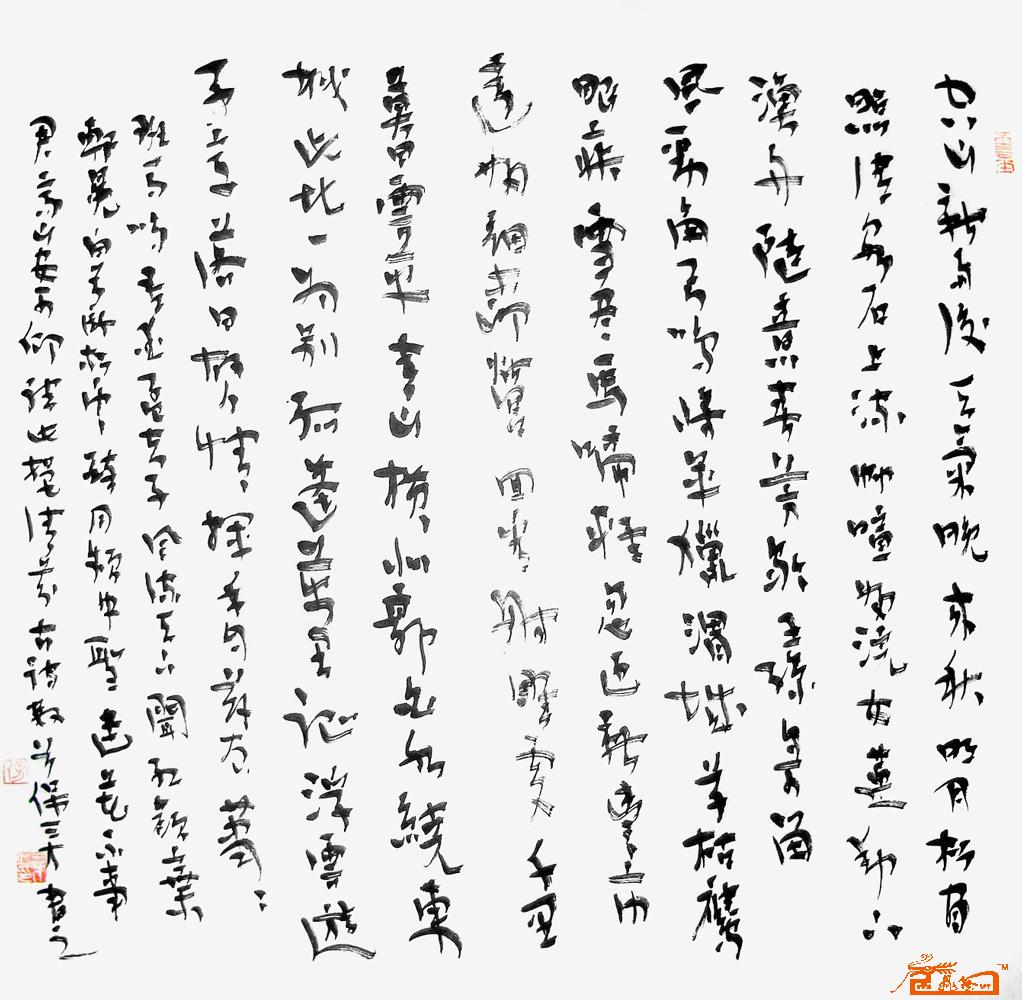 空山新雨後天氣晚來秋明月松間
照清泉石上流竹喧歸浣女蓮動下
漁舟隨意春芳歇王孫自可留
風勁角弓鳴將軍獵渭城草枯鷹
眼疾雪盡馬蹄輕忽過新豐市
還歸細柳營回看射雕處千里
暮雲平青山橫北郭白水繞東
城此地一為別孤蓬萬里征浮雲遊
子意落日故人情揮手自茲去蕭々
班馬鳴吾愛孟夫子風流天下聞紅顏棄
軒冕白首臥松雲醉月頻中聖迷花不事
君高山安可仰徒此揖清芬古詩數首保三書之